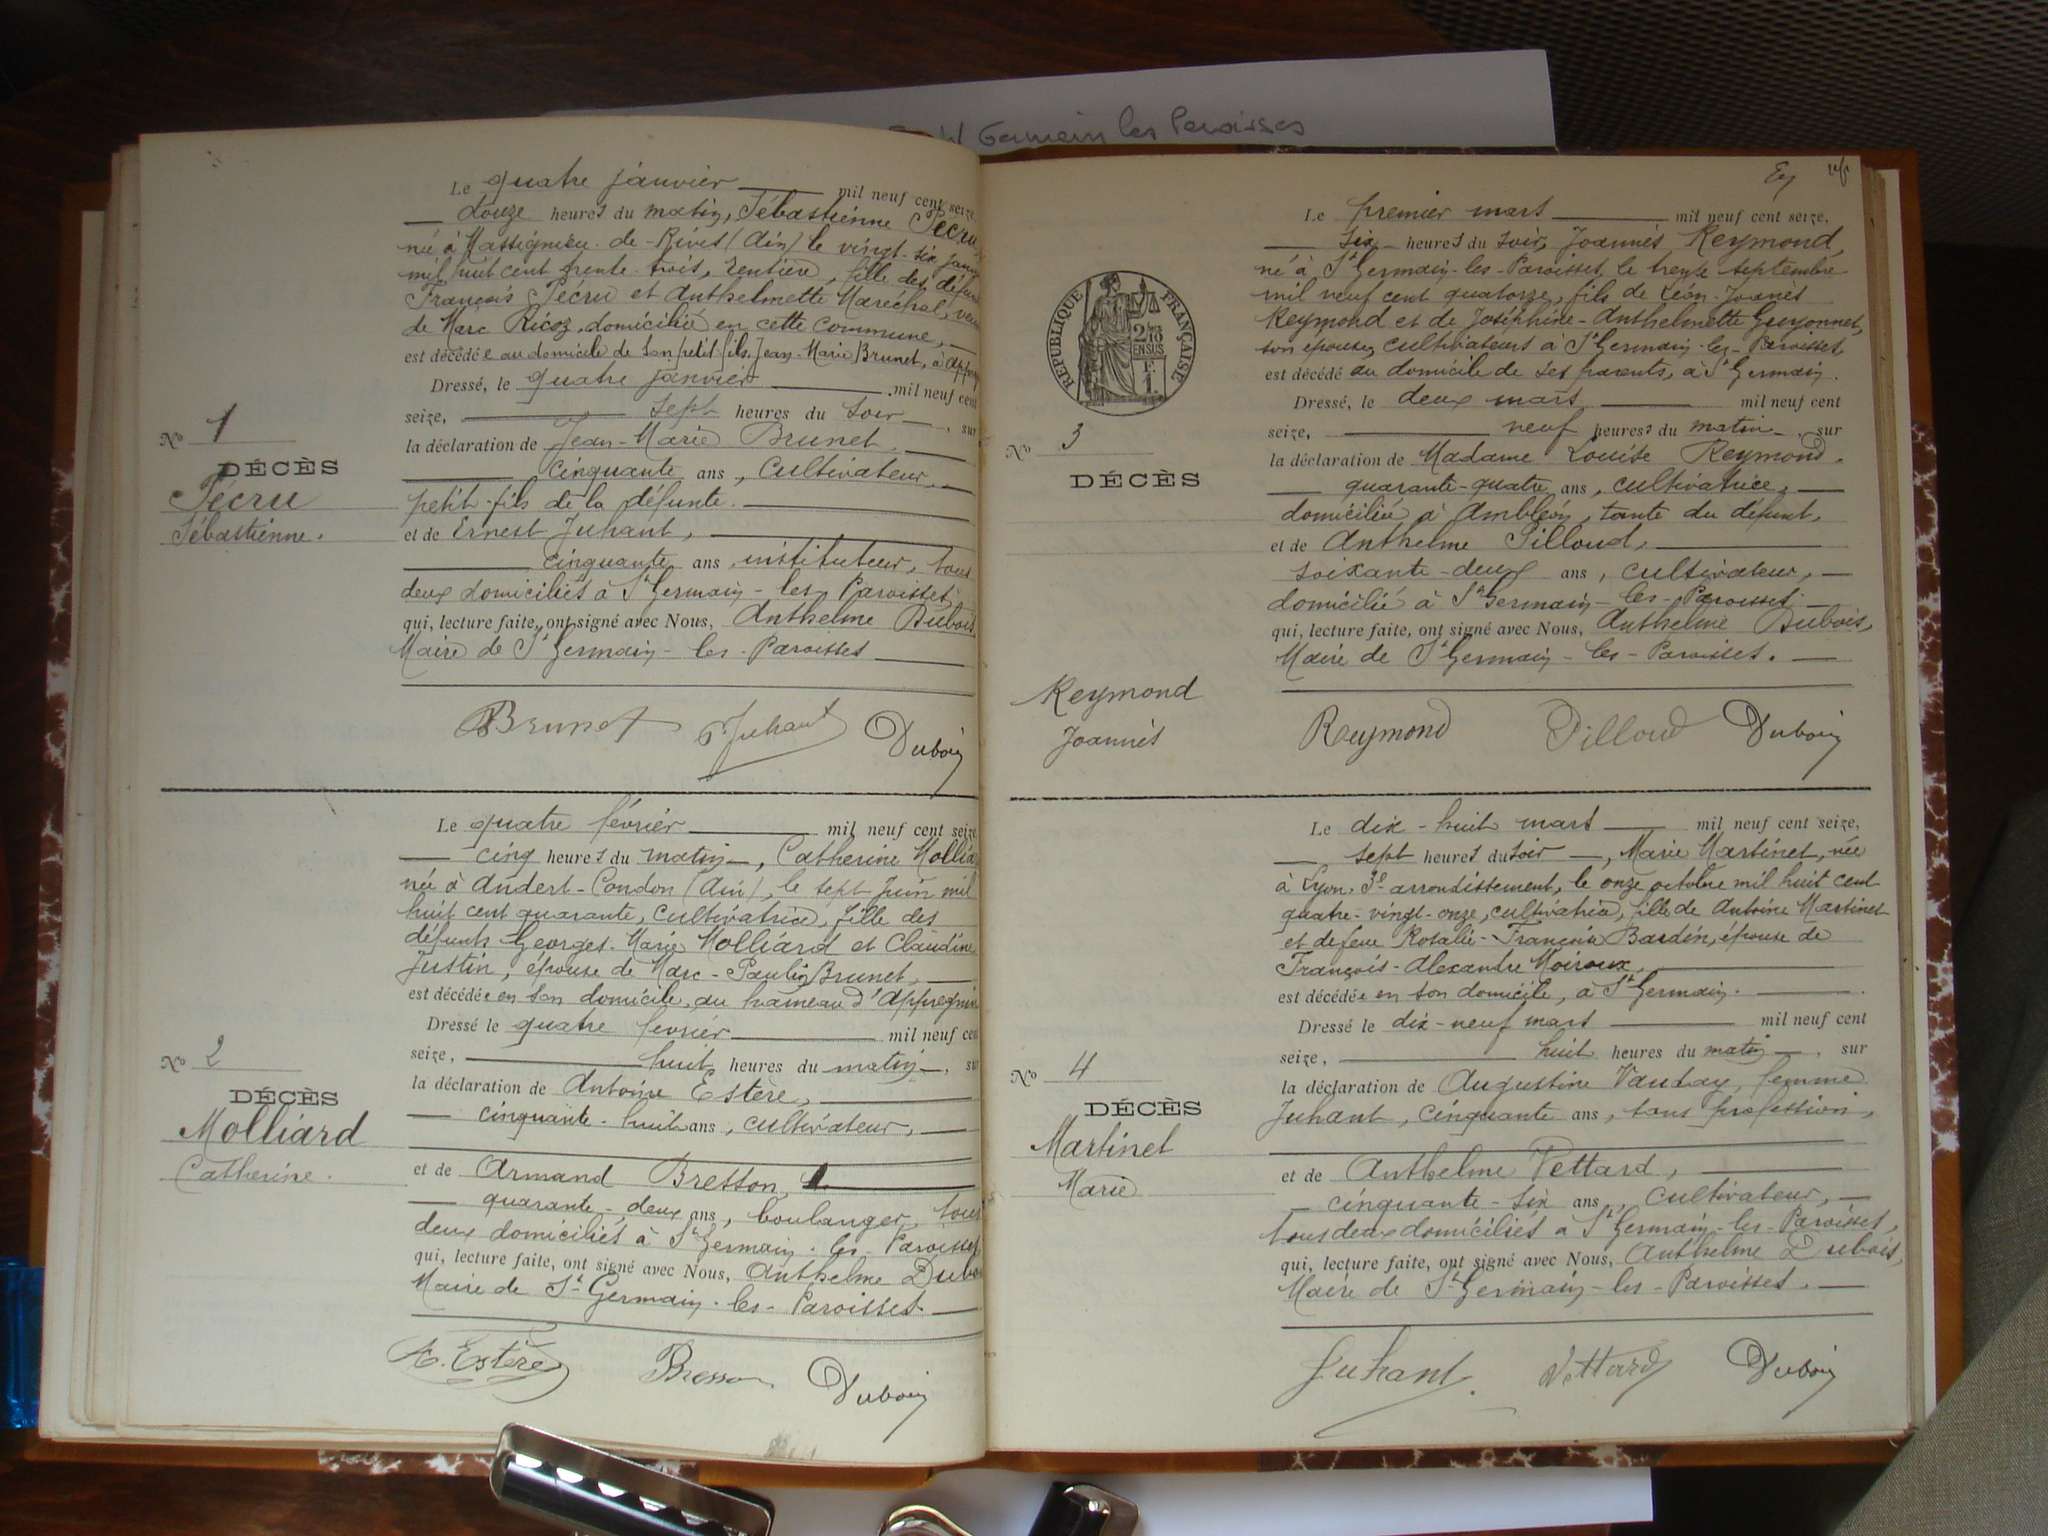 Saint Germain les Paroisses
Le quatre janvier mil neuf cent seize,
douze heures du matin, Sébastienne Pécru
née à Massignieu-de-Rives (Ain) le vingt-six janv
mil huit cent trente-trois, rentière, fille des défunts
François Pécru et Anthelmette Maréchal, veuve
de Marc Ricoz, domiciliée en cette commune,
est décédée au domicile de son petit-fils, Jean-Marie Brunet, à Appreg
Dressé, le quatre janvier mil neuf cent
seize, sept heures du soir, sur
la déclaration de Jean-Marie Brunet,
cinquante ans, cultivateur,
petit-fils de la défunte.
et de Ernest Juhant,
cinquante ans, instituteur, tous
deux domiciliés à St Germain-les-Paroisses,
qui, lecture faite, ont signé avec Nous, Anthelme Dubois,
Maire de St Germain-les-Paroisses
No 1
DÉCÈS
Pécru
Sébastienne.
Brunet Juhant Dubois
Le quatre février mil neuf cent seize,
cinq heures du matin, Catherine Mollia
née à Andert-Condon (Ain), le sept Juin mil
huit cent quarante, cultivatrice, fille des
défunts Georges-Marie Molliard et Claudine
Justin, épouse de Marc-Paulin Brunet,
est décédée en son domicile, au hameau d'Appregnin
Dressé le quatre février mil neuf cent
seize, huit heures du matin, sur
la déclaration de Antoine Estère,
cinquante-huit ans, cultivateur,
et de Armand Bresson,
quarante-deux ans, boulanger, tous
deux domiciliés à St Germain-les-Paroisses
qui, lecture faite, ont signé avec Nous, Anthelme Dubo
Maire de St Germain-les-Paroisses.
No 2
DÉCÈS
Molliard
Catherine.
A. Estère Bresson Dubois
RÉPUBLIQUE FRANÇAISE
2/10
EN SUS
1 F.
Le premier mars mil neuf cent seize,
six heures du soir, Joannès Reymond,
né à St Germain-les-Paroisses, le treize septembre
mil neuf cent quatorze, fils de Léon-Joanès
Reymond et de Joséphine-Anthelmette Guyonnet,
son épouse, cultivateurs à St Germain-les-Paroisses
est décédé au domicile de ses parents, à St Germain.
Dressé, le deux mars mil neuf cent
seize, neuf heures du matin, sur
la déclaration de Madame Louise Reymond,
quarante-quatre ans, cultivatrice,
domiciliée à Ambléon, tante du défunt,
et de Anthelme Pilloud,
soixante-deux ans, cultivateur,
domicilié à St Germain-les-Paroisses
qui, lecture faite, ont signé avec Nous, Anthelme Dubois,
Maire de St Germain-les-Paroisses.
No 3
DÉCÈS
Reymond
Joannès
Reymond Pilloud Dubois
Le dix-huit mars mil neuf cent seize,
sept heures du soir, Marie Martinet, née
à Lyon, 3e arrondissement, le onze octobre mil huit cent
quatre-vingt-onze, cultivatrice, fille de Antoine Martinet
et de feue Rosalie-Françoise Bardin, épouse de
François-Alexandre Moiroux,
est décédée en son domicile, à St Germain.
Dressé le dix-neuf mars mil neuf cent
seize, huit heures du matin, sur
la déclaration de Augustine Vautay, femme
Juhant, cinquante ans, sans profession,
et de Anthelme Vettard,
cinquante-six ans, cultivateur,
tous deux domiciliés à St Germain-les-Paroisses,
qui, lecture faite, ont signé avec Nous, Anthelme Dubois,
Maire de St Germain-les-Paroisses.
No 4
DÉCÈS
Martinet
Marie
Juhant Vettard Dubois